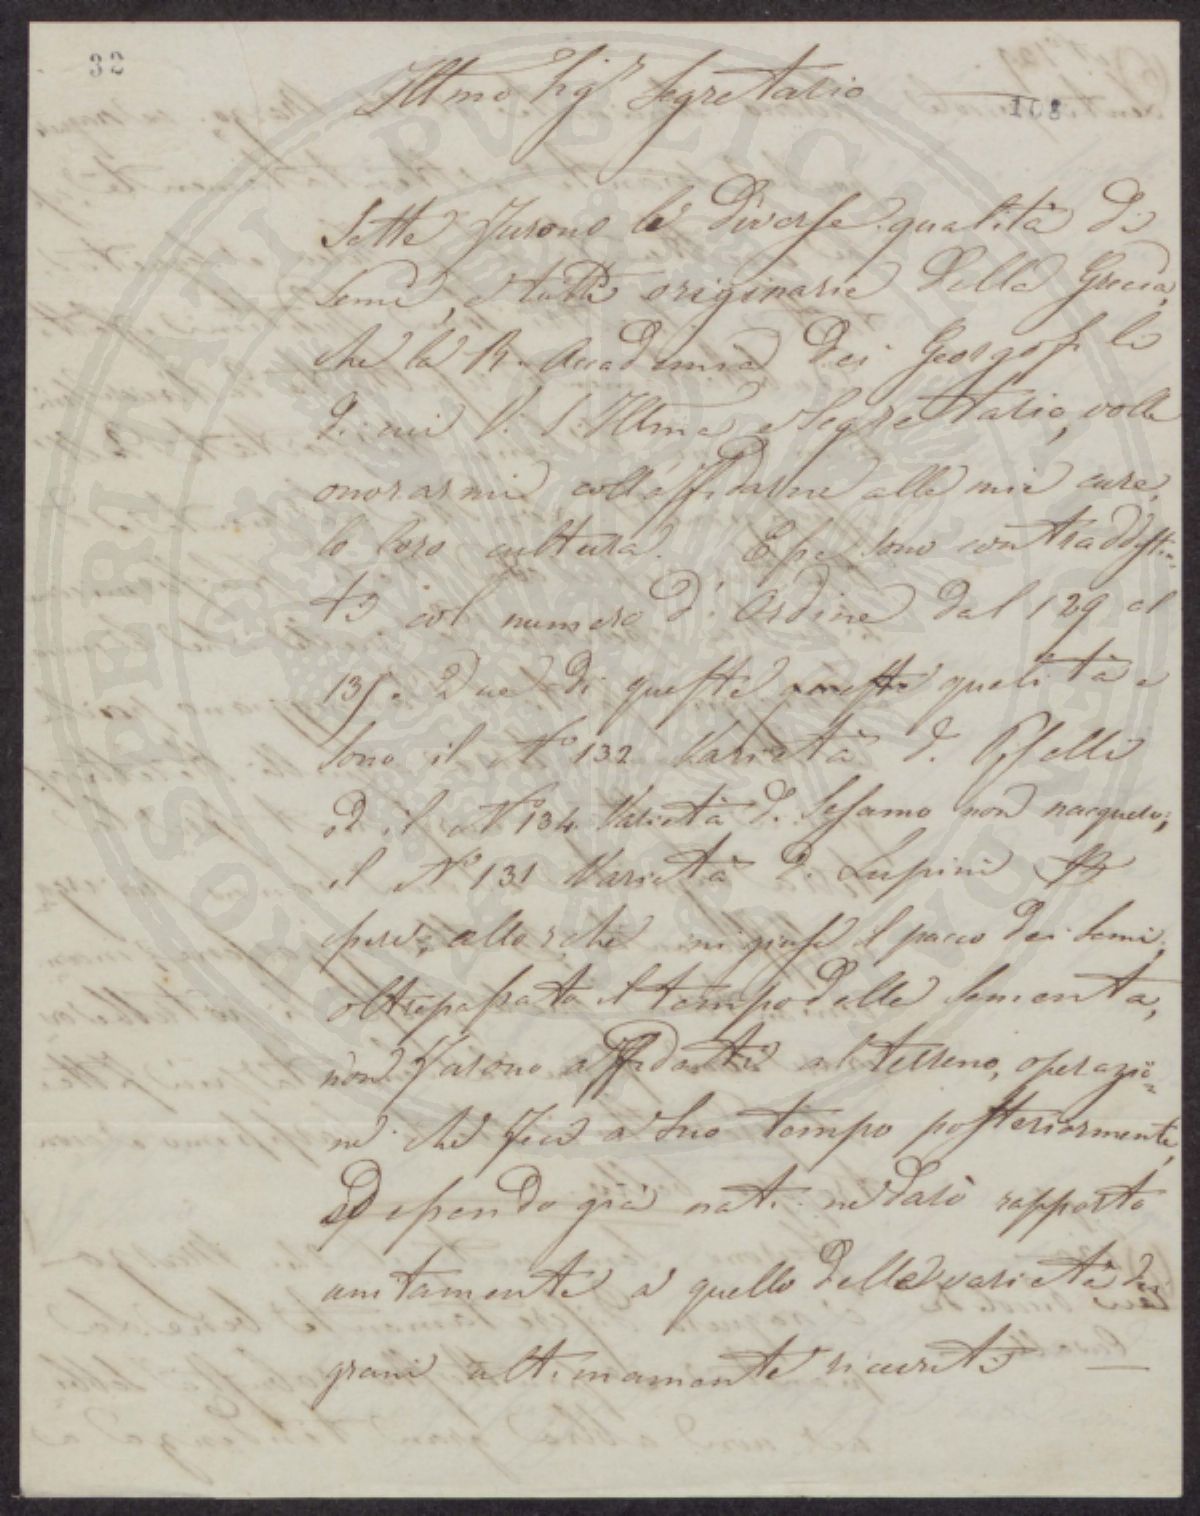 32
Illmo Sigr Segretario
108
Sette furono le diverse qualità di
Semi, e tutte originarie della Grecia,
che la R. Accademia dei Georgofili
di cui V. S. Illma e Segretario, volle
onorarmi coll'affidarne alle mie cure,
la loro cultura. Esse sono contraddistin=
te col numero d'Ordine dal 129 al
135. Due di queste queste qualità e
sono il No 132 Varietà di Piselli
ed il No 134 Varietà di Sesamo non nacquero;
il No 131 Varietà di Lupini
essere, allorchè mi giunse il pacco dei Semi,
oltrepassata il tempo della Sementa,
non furono affidati al terreno, operazio=
ne che feci a Suo tempo posteriormente,
Ed essendo già nati ne darò rapporto
unitamente a quello delle varietà di
grani ultimamente ricevute —